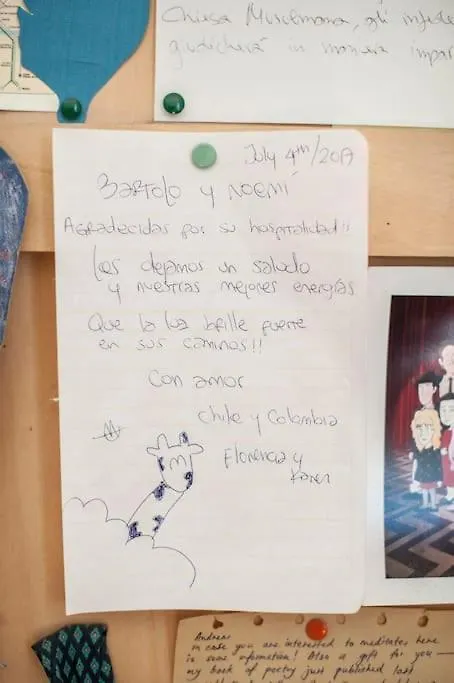 Chiesa Musulmana, gli
giudicherà in maniera
July 4th/2017
Bartolo y Noemí
Agradecidas por su hospitalidad!!
Les dejamos un saludo
y nuestras mejores energías
Que la luz brille fuerte
en sus caminos!!
Con amor
Chile y Colombia
Florencia y
Karen
Andrea
in case you are interested to meditate here
is some information! Also a gift for you —
my book of poetry just published last